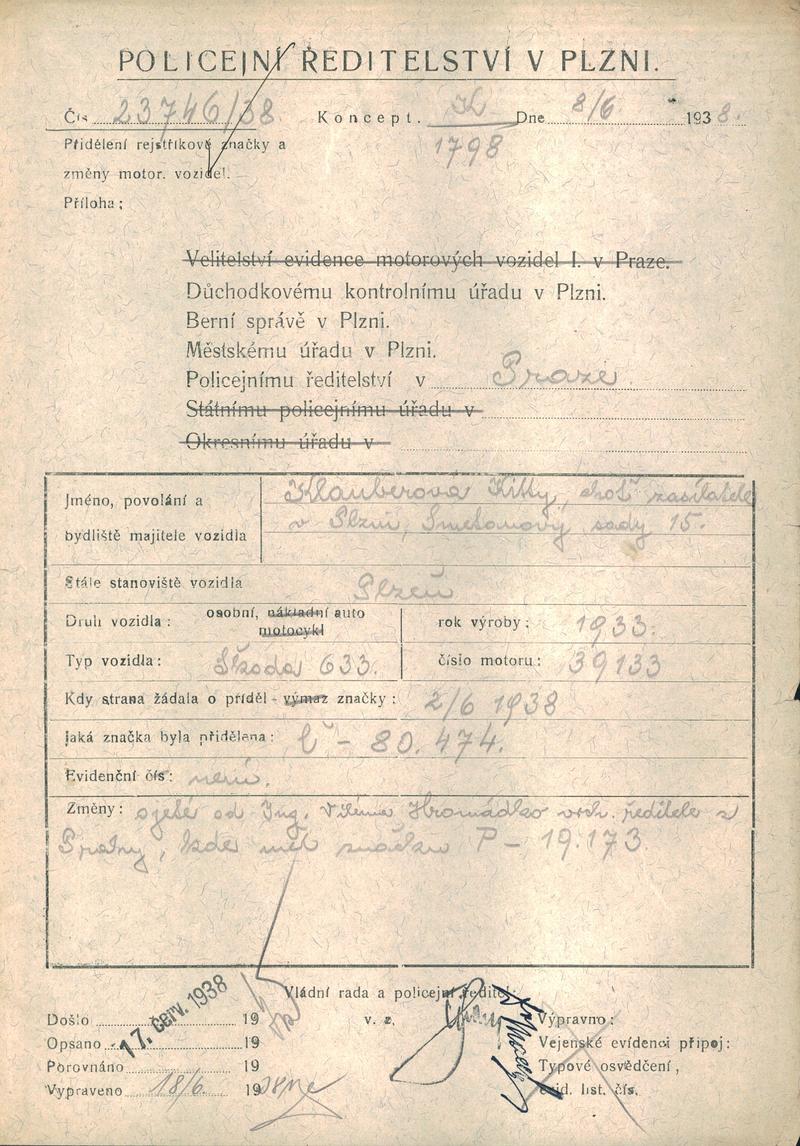 POLICEJNÍ ŘEDITELSTVÍ V PLZNI.
Čís 23746/38 Koncept. Dne 8/6 1938.
Přidělení rejstříkové značky a 1798
změny motor. vozidel.
Příloha ;
Velitelství evidence motorových vozidel I. v Praze.
Důchodkovému kontrolnímu úřadu v Plzni.
Berní správě v Plzni.
Městskému úřadu v Plzni.
Policejnímu ředitelství v Praze
Státnímu policejnímu úřadu v
Okresnímu úřadu v
Jméno, povolání a Klauberová Kitty, choť zasilatele
bydliště majitele vozidla v Plzni, Smetanovy sady 15.
Stálé stanoviště vozidla Plzeň
Druh vozidla : osobní, nákladní auto rok výroby : 1933.
motocykl
Typ vozidla : Škoda 633. číslo motoru : 39133
Kdy strana žádala o příděl - výmaz značky : 2/6 1938
jaká značka byla přidělena : Č - 80.474.
Evidenční čís : není.
Změny : ojeté od Ing. Viléma Hromádko vrch. ředitele z
Prahy, kde měl značku P - 19.173.
Vládní rada a policejní ředitel:
Došlo 19 v. z. Výpravno :
17. červ. 1938
Opsano 19 Vejenské evidenci připoj :
Porovnáno 19 Typové osvědčení ,
Vypraveno 18/6 19 evid. list. čís.